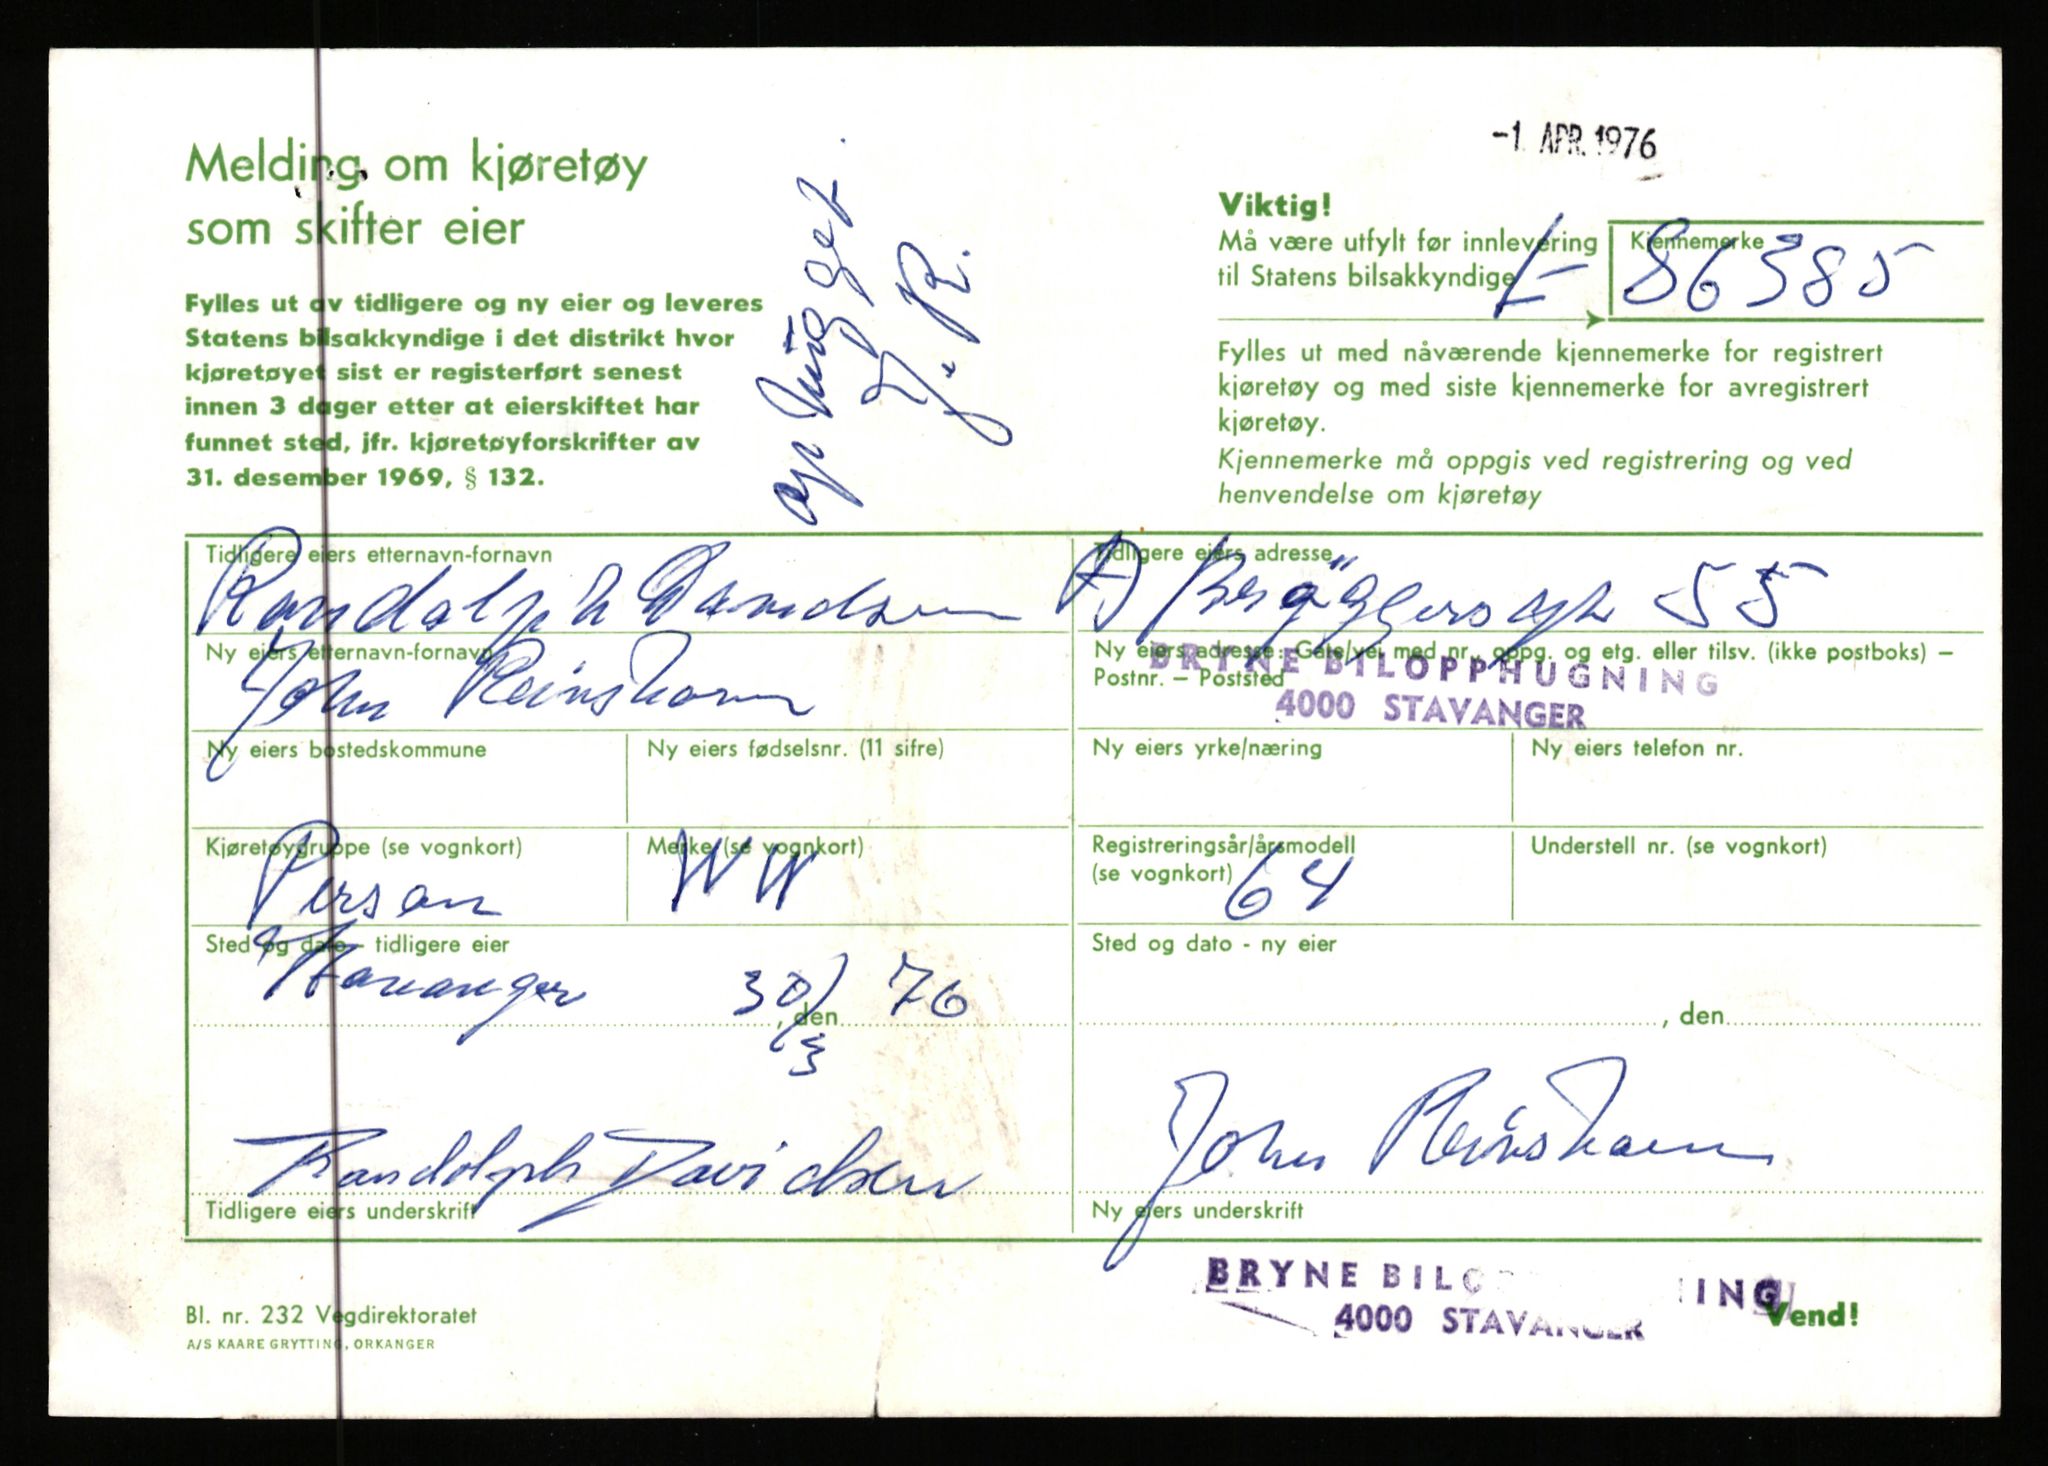 -1. APR. 1976
Melding om kjøretøy
som skifter eier
Fylles ut av tidligere og ny eier og leveres
Statens bilsakkyndige i det distrikt hvor
kjøretøyet sist er registerført senest
innen 3 dager etter at eierskiftet har
funnet sted, jfr. kjøretøyforskrifter av
31. desember 1969, § 132.
J. R.
Viktig!
Må være utfylt før innlevering
til Statens bilsakkyndige
Kjennemerke
L- 86385
Fylles ut med nåværende kjennemerke for registrert
kjøretøy og med siste kjennemerke for avregistrert
kjøretøy.
Kjennemerke må oppgis ved registrering og ved
henvendelse om kjøretøy
Tidligere eiers etternavn-fornavn
Randolph Davidsen
Tidligere eiers adresse
55
Ny eiers etternavn-fornavn
John Reinskau
Ny eiers adresse: Gate/vei med nr., oppg. og etg. eller tilsv. (ikke postboks) –
Postnr. – Poststed
BRYNE BILOPPHUGNING
4000 STAVANGER
Ny eiers bostedskommune
Ny eiers fødselsnr. (11 sifre)
Ny eiers yrke/næring
Ny eiers telefon nr.
Kjøretøygruppe (se vognkort)
Person
Merke (se vognkort)
WW
Registreringsår/årsmodell
(se vognkort)
64
Understell nr. (se vognkort)
Sted og dato - tidligere eier
Stavanger 30/3, den 76
Sted og dato - ny eier
, den
Randolph Davidsen
Tidligere eiers underskrift
John Reinskau
Ny eiers underskrift
BRYNE BILO ING
4000 STAVANGER
Vend!
Bl. nr. 232 Vegdirektoratet
A/S KAARE GRYTTING, ORKANGER